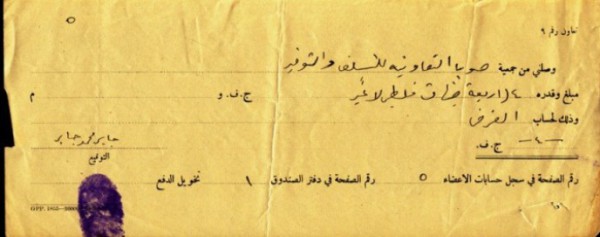 ٥
تعاون رقم ٩
وصلني من جمعية صوبا التعاونيه للتسليف والتوفير
مبلغ وقدره ٤ اربعة جنيهات فلسطين لا غير ج.ف. و م
وذلك لحساب القرض
-٤- ج.ف.
جابر محمد جابر
التوقيع
رقم الصفحة في سجل حسابات الاعضاء ٥ رقم الصفحة في دفتر الصندوق ١ تخويل الدفع